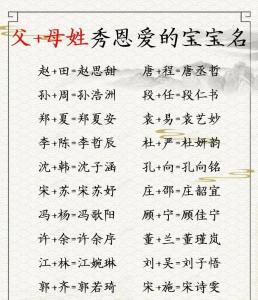 父+母姓秀恩爱的宝宝名
赵+田=赵思甜 唐+程=唐丞哲
孙+周=孙浩洲 段+任=段仁书
郑+夏=郑夏安 袁+易=袁艺妙
李+陈=李哲辰 杜+严=杜妍韵
沈+韩=沈子涵 孔+向=孔向铭
宋+苏=宋苏妤 庄+邵=庄韶宜
冯+杨=冯歌阳 顾+宁=顾佳宁
许+余=许余序 董+兰=董瑾岚
江+林=江婉琳 刘+吴=刘子悟
郭+齐=郭若琦 宋+施=宋诗雯